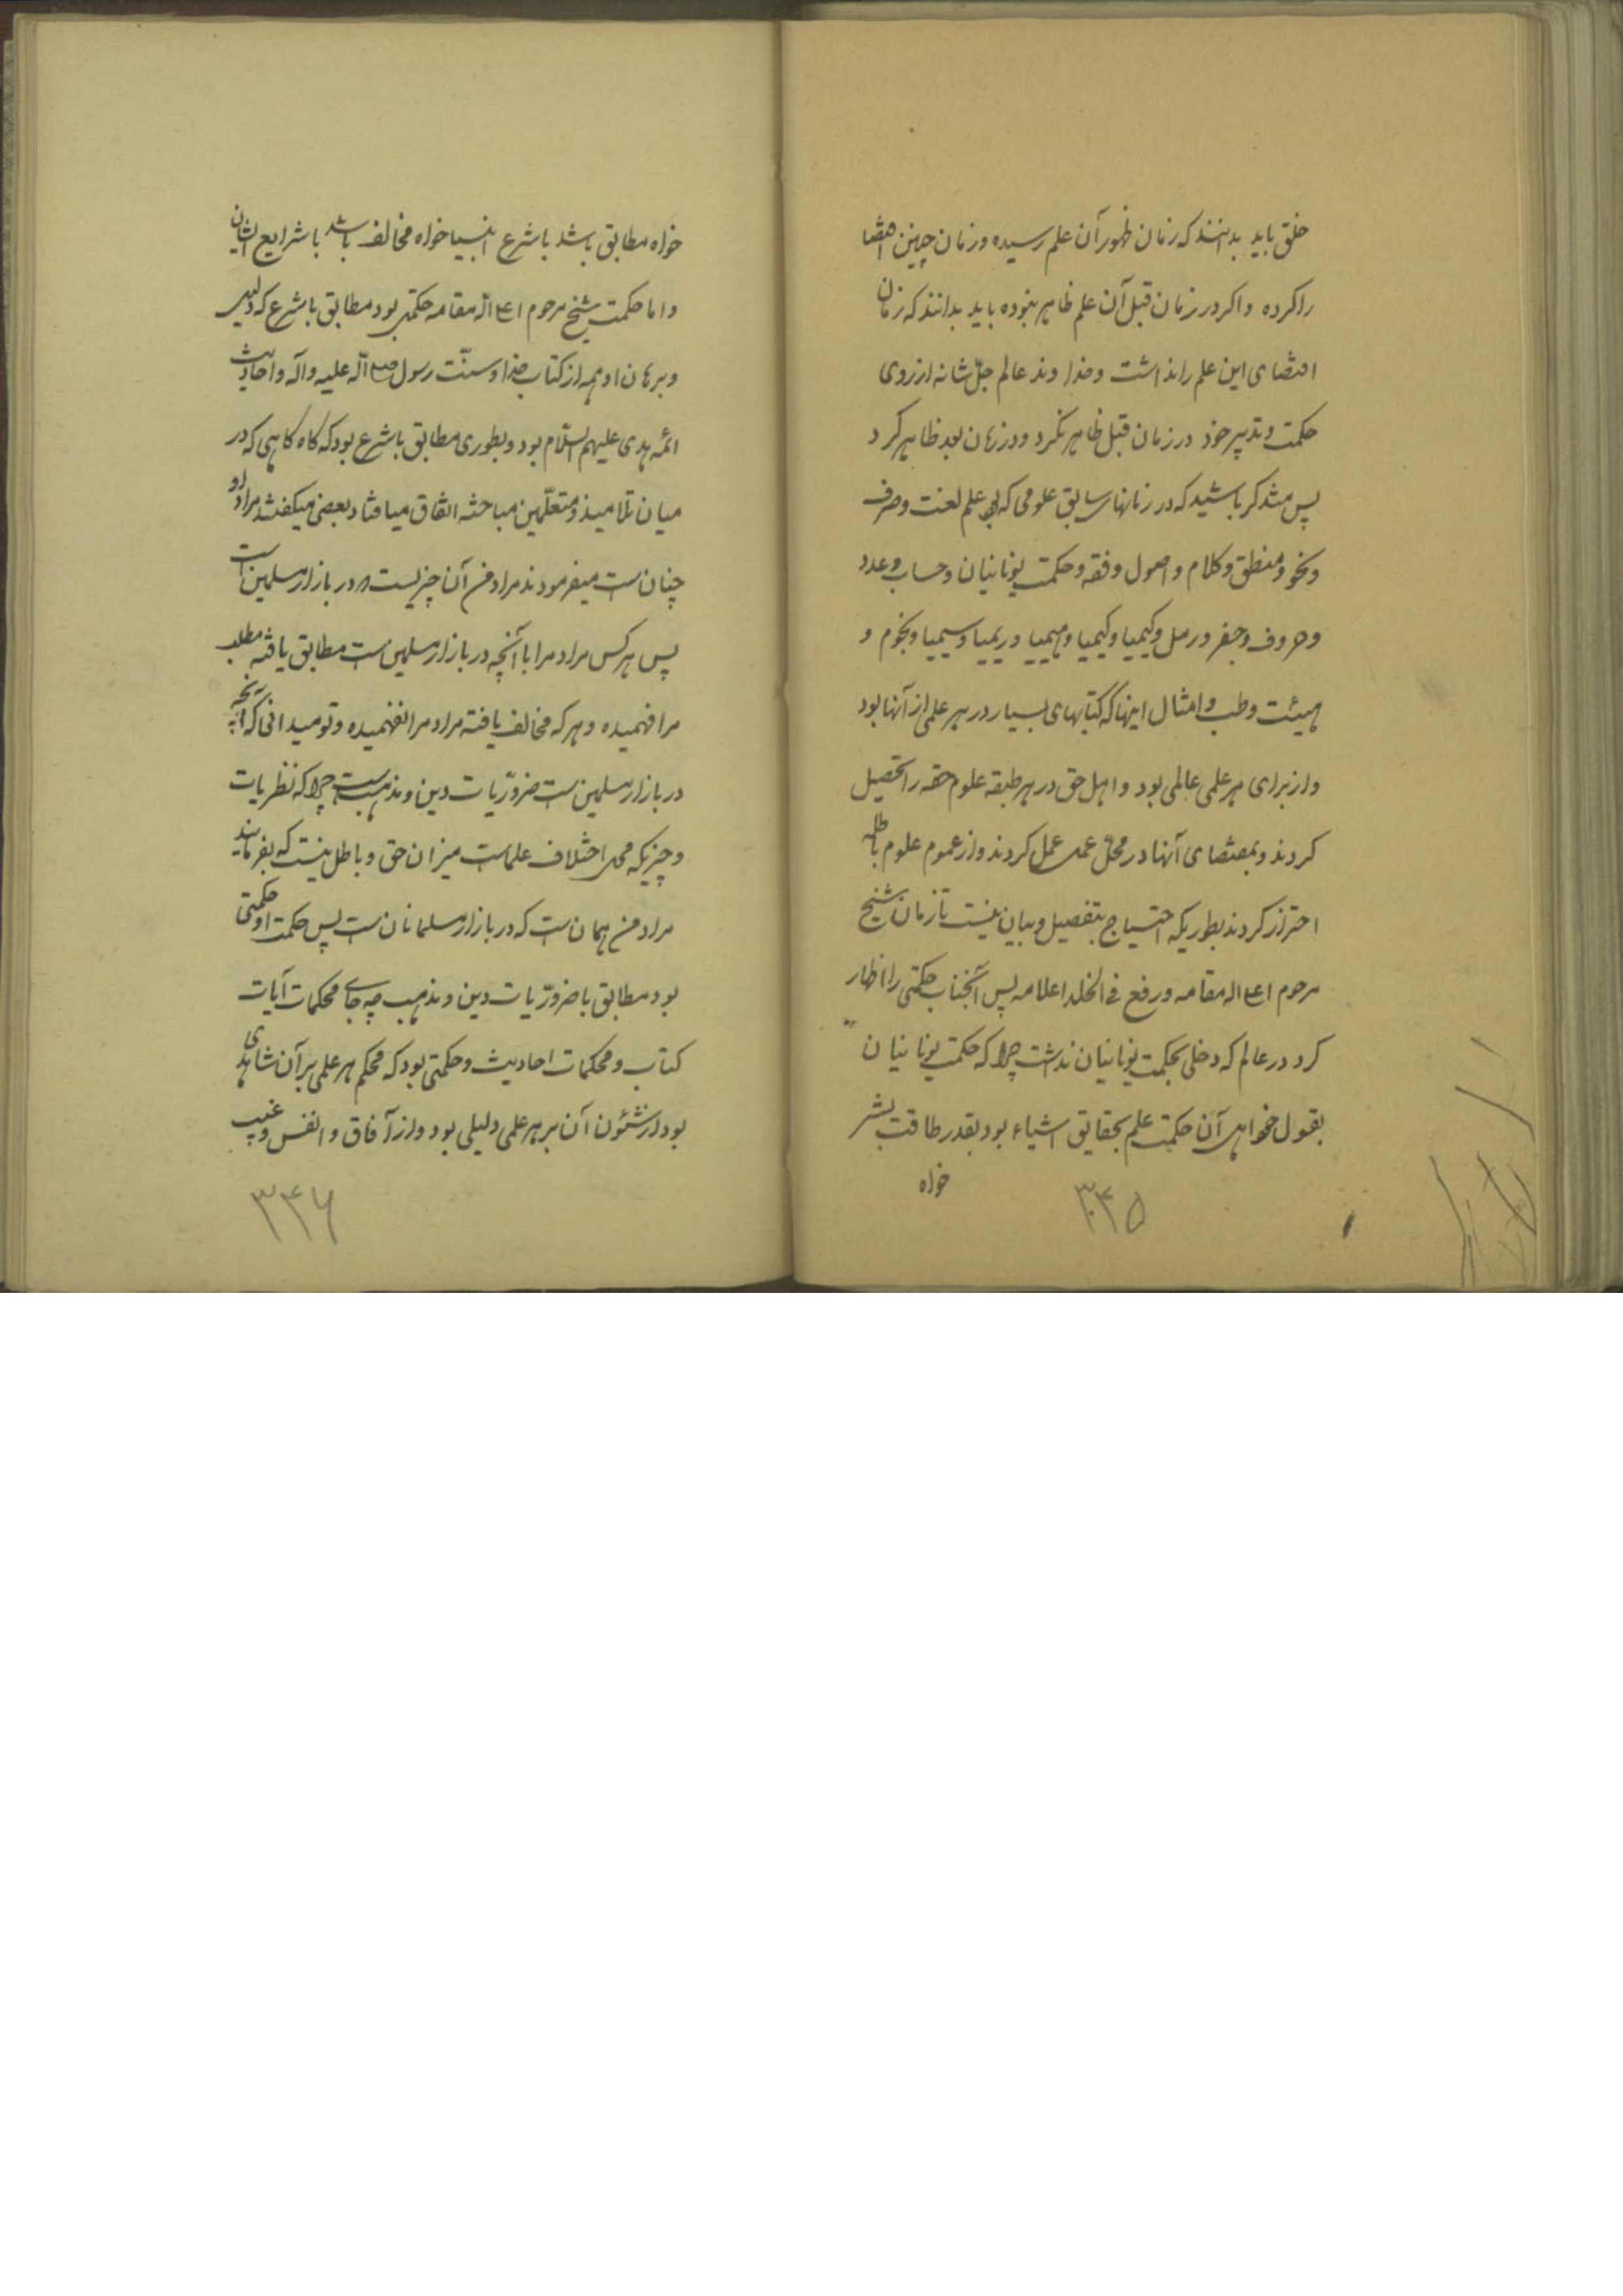 خلق باید بدانند که زمان ظهور آن علم رسیده و زمان چنین اقتضا
را کرده و اکر در زمان قبل آن علم ظاهر نبوده باید بدانند که زمان
اقتضای این علم را نداشت و خداوند عالم جلّ شانه از روی
حکمت و تدبیر خود در زمان قبل ظاهر نکرد و در زمان بعد ظاهر کرد
پس متذکر باشید که در زمانهای سابق علومی که بود علم لغت و صرف
و نحو و منطق و کلام و اصول و فقه و حکمت یونانیان و حساب و عدد
و حروف و جفر و رمل و کیمیا و لیمیا و هیمیا و ریمیا و سیمیا و نجوم و
هیئت و طب و امثال اینها که کتابهای بسیار در هر علمی از آنها بود
و از برای هر علمی عالمی بود و اهل حق در هر طبقه علوم حقه را تحصیل
کردند و بمقتضای آنها در محلّ عمل عمل کردند و از عموم علوم باطله
احتراز کردند بطوریکه احتیاج بتفصیل و بیان نیست تا زمان شیخ
مرحوم اعلی اله مقامه و رفع فی الخلد اعلامه پس آنجناب حکمتی را اظهار
کرد در عالم که دخلی بحکمت یونانیان نداشت چرا که حکمت یونانیان
بقول خواهی آن حکمت علم بحقایق اشیاء بود بقدر طاقت بشر
خواه
۳۴۵
خواه مطابق باشد با شرع انبیا خواه مخالف باشد با شرایع ایشان
و اما حکمت شیخ مرحوم اعلی اله مقامه حکمتی بود مطابق با شرع که دلیل
و برهان او همه از کتاب خدا و سنّت رسول صلی اله علیه و آله و احادیث
ائمه هدی علیهم السّلام بود و بطوری مطابق با شرع بود که کاه کاهی که در
میان تلامیذ و متعلّمین مباحثه اتفاق میافتاد بعضی میکفتند مراد او
چنان است میفرمودند مراد من آن چیزیست که در بازار مسلمین است
پس هر کس مراد مرا با آنچه در بازار مسلمین است مطابق یافته مطلب
مرا فهمیده و هر که مخالف یافته مراد مرا نفهمیده و تو میدانی که آنچه
در بازار مسلمین است ضروریّات دین و مذهب است چرا که نظریات
و چیزیکه محل اختلاف علماست میزان حق و باطل نیست که بفرمایند
مراد من همان است که در بازار مسلمانان است پس حکمت او حکمتی
بود مطابق با ضروریّات دین و مذهب چه جای محکمات آیات
کتاب و محکمات احادیث و حکمتی بود که محکم هر علمی بر آن شاهدی
بود از شئون آن بر هر علمی دلیلی بود و از آفاق و انفس و غیب
۳۴۶